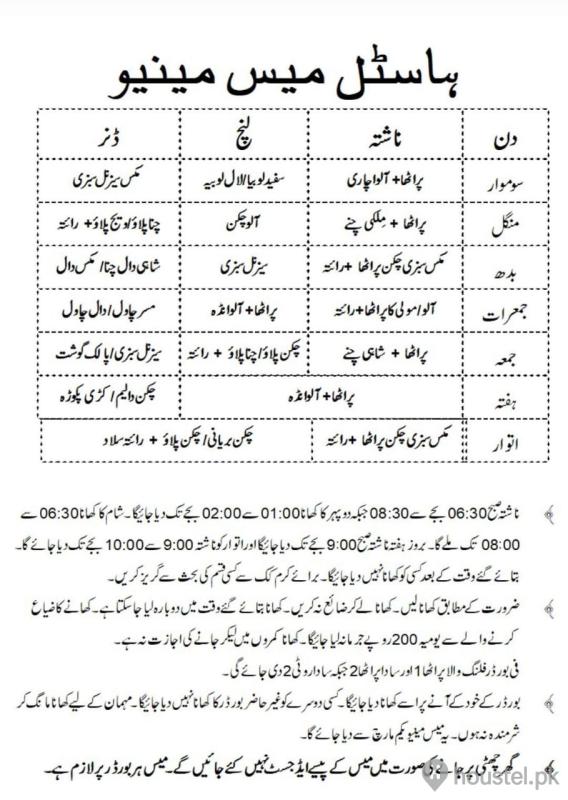 ہاسٹل میس مینیو
دن ناشتہ لنچ ڈنر
سوموار پراٹھا+ آلواچاری سفیدلوبیا/لال لوبیہ مکس سیزنل سبزی
منگل پراٹھا + ملکی چنے آلو چکن چنا پلاؤ/ویج پلاؤ+ رائتہ
بدھ مکس سبزی چکن پراٹھا +رائتہ سیزنل سبزی شاہی دال چنا/ مکس دال
جمعرات آلو/مولی کا پراٹھا+رائتہ پراٹھا+ آلوانڈہ مسر چاول/ دال چاول
جمعہ پراٹھا + شاہی چنے چکن پلاؤ/چنا پلاؤ + رائتہ سیزنل سبزی/پالک گوشت
ہفتہ پراٹھا+ آلوانڈہ چکن دالیم/ کڑی پکوڑہ
اتوار مکس سبزی چکن پراٹھا +رائتہ چکن بریانی/ چکن پلاؤ + رائتہ سلاد
ناشتہ صبح 06:30 بجے سے 08:30 جبکہ دوپہر کا کھانا 01:00 سے 02:00 بجے تک دیا جائیگا۔ شام کا کھانا 06:30 سے
08:00 تک ملے گا۔ بروز ہفتہ ناشتہ صبح 9:00 بجے تک دیا جائیگا اور اتوار کو ناشتہ 9:00 سے 10:00 بجے تک دیا جائے گا۔
بتائے گئے وقت کے بعد کسی کو کھانا نہیں دیا جائیگا۔ برائے کرم کک سے کسی قسم کی بحث سے گریز کریں۔
ضرورت کے مطابق کھانا لیں۔ کھانا لے کر ضائع نہ کریں۔ کھانا بتائے گئے وقت میں دوبارہ لیا جا سکتا ہے۔ کھانے کا ضیاع
کرنے والے سے یومیہ 200 روپے جرمانہ لیا جائیگا۔ کھانا کمروں میں لیکر جانے کی اجازت نہ ہے۔
فی بورڈر فلنگ والا پراٹھا 1 اور سادا پراٹھا 2 جبکہ سادا روٹی 2 دی جائے گی۔
بورڈر کے خود کے آنے پر اسے کھانا دیا جائیگا۔ کسی دوسرے کو غیر حاضر بورڈر کا کھانا نہیں دیا جائیگا۔ مہمان کے لیے کھانا مانگ کر
شرمندہ نہ ہوں۔ یہ میس مینیو یکم مارچ سے دیا جائے گا۔
گھر چھٹی پر جانے کی صورت میں میس کے پیسے ایڈجسٹ نہیں کئے جائیں گے۔ میس ہر بورڈر پر لازم ہے۔
houstel.pk